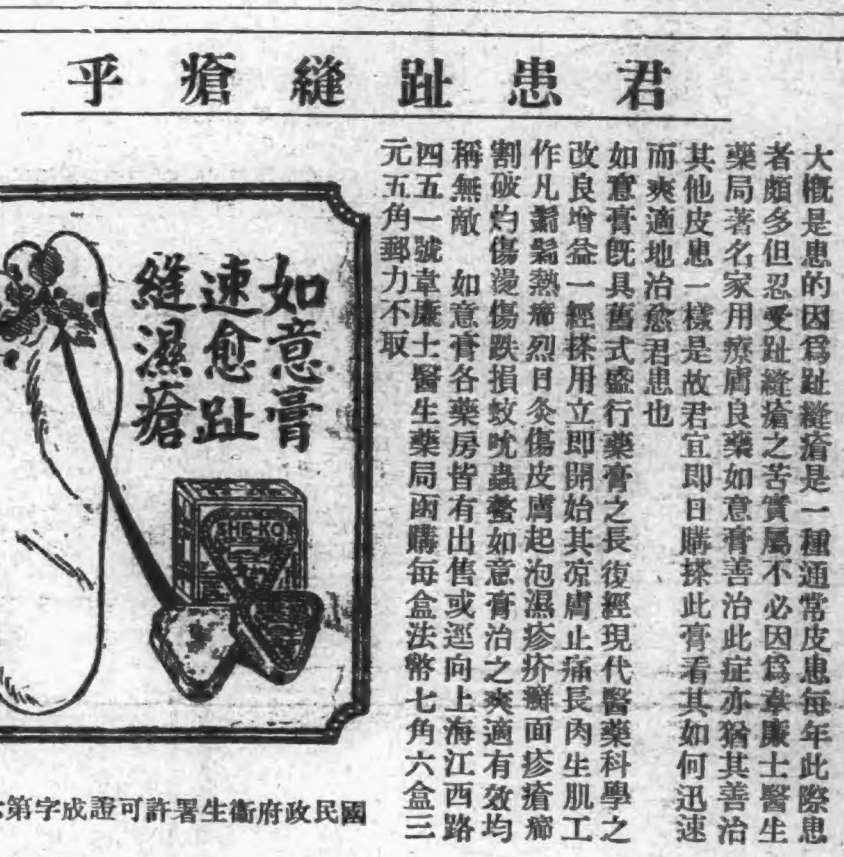 君患趾縫瘡乎
大概是患的因爲趾縫瘡是一種通常皮患每年此際患
者頗多但忍受趾縫瘡之苦實屬不必因爲韋廉士醫生
藥局著名家用療膚良藥如意膏善治此症亦猶其善治
其他皮患一樣是故君宜即日購搽此膏看其如何迅速
而爽適地治愈君患也
如意膏既具舊式盛行藥膏之長復經現代醫藥科學之
改良增益一經搽用立即開始其凉膚止痛長肉生肌工
作凡鬎鬁熱癤烈日灸傷皮膚起泡濕疹疥癬面疹瘡癤
割破灼傷燙傷跌損蚊吮蟲螫如意膏治之爽適有效均
稱無敵 如意膏各藥房皆有出售或逕向上海江西路
四五一號韋廉士醫生藥局函購每盒法幣七角六盒三
元五角郵力不取
如意膏
速愈趾
縫濕瘡
SHE-KO
國民政府衞生署許可證成字第